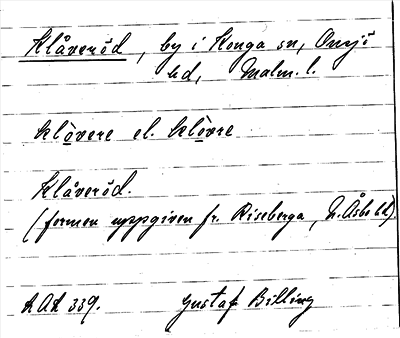 Klåveröd, by i Konga sn, Onsjö
hd, Malm. l.
klòvere el. klòvre
Klåveröd.
(formen uppgiven fr. Riseberga, N. Åsbo hd).
LAL 339. Gustaf Billing